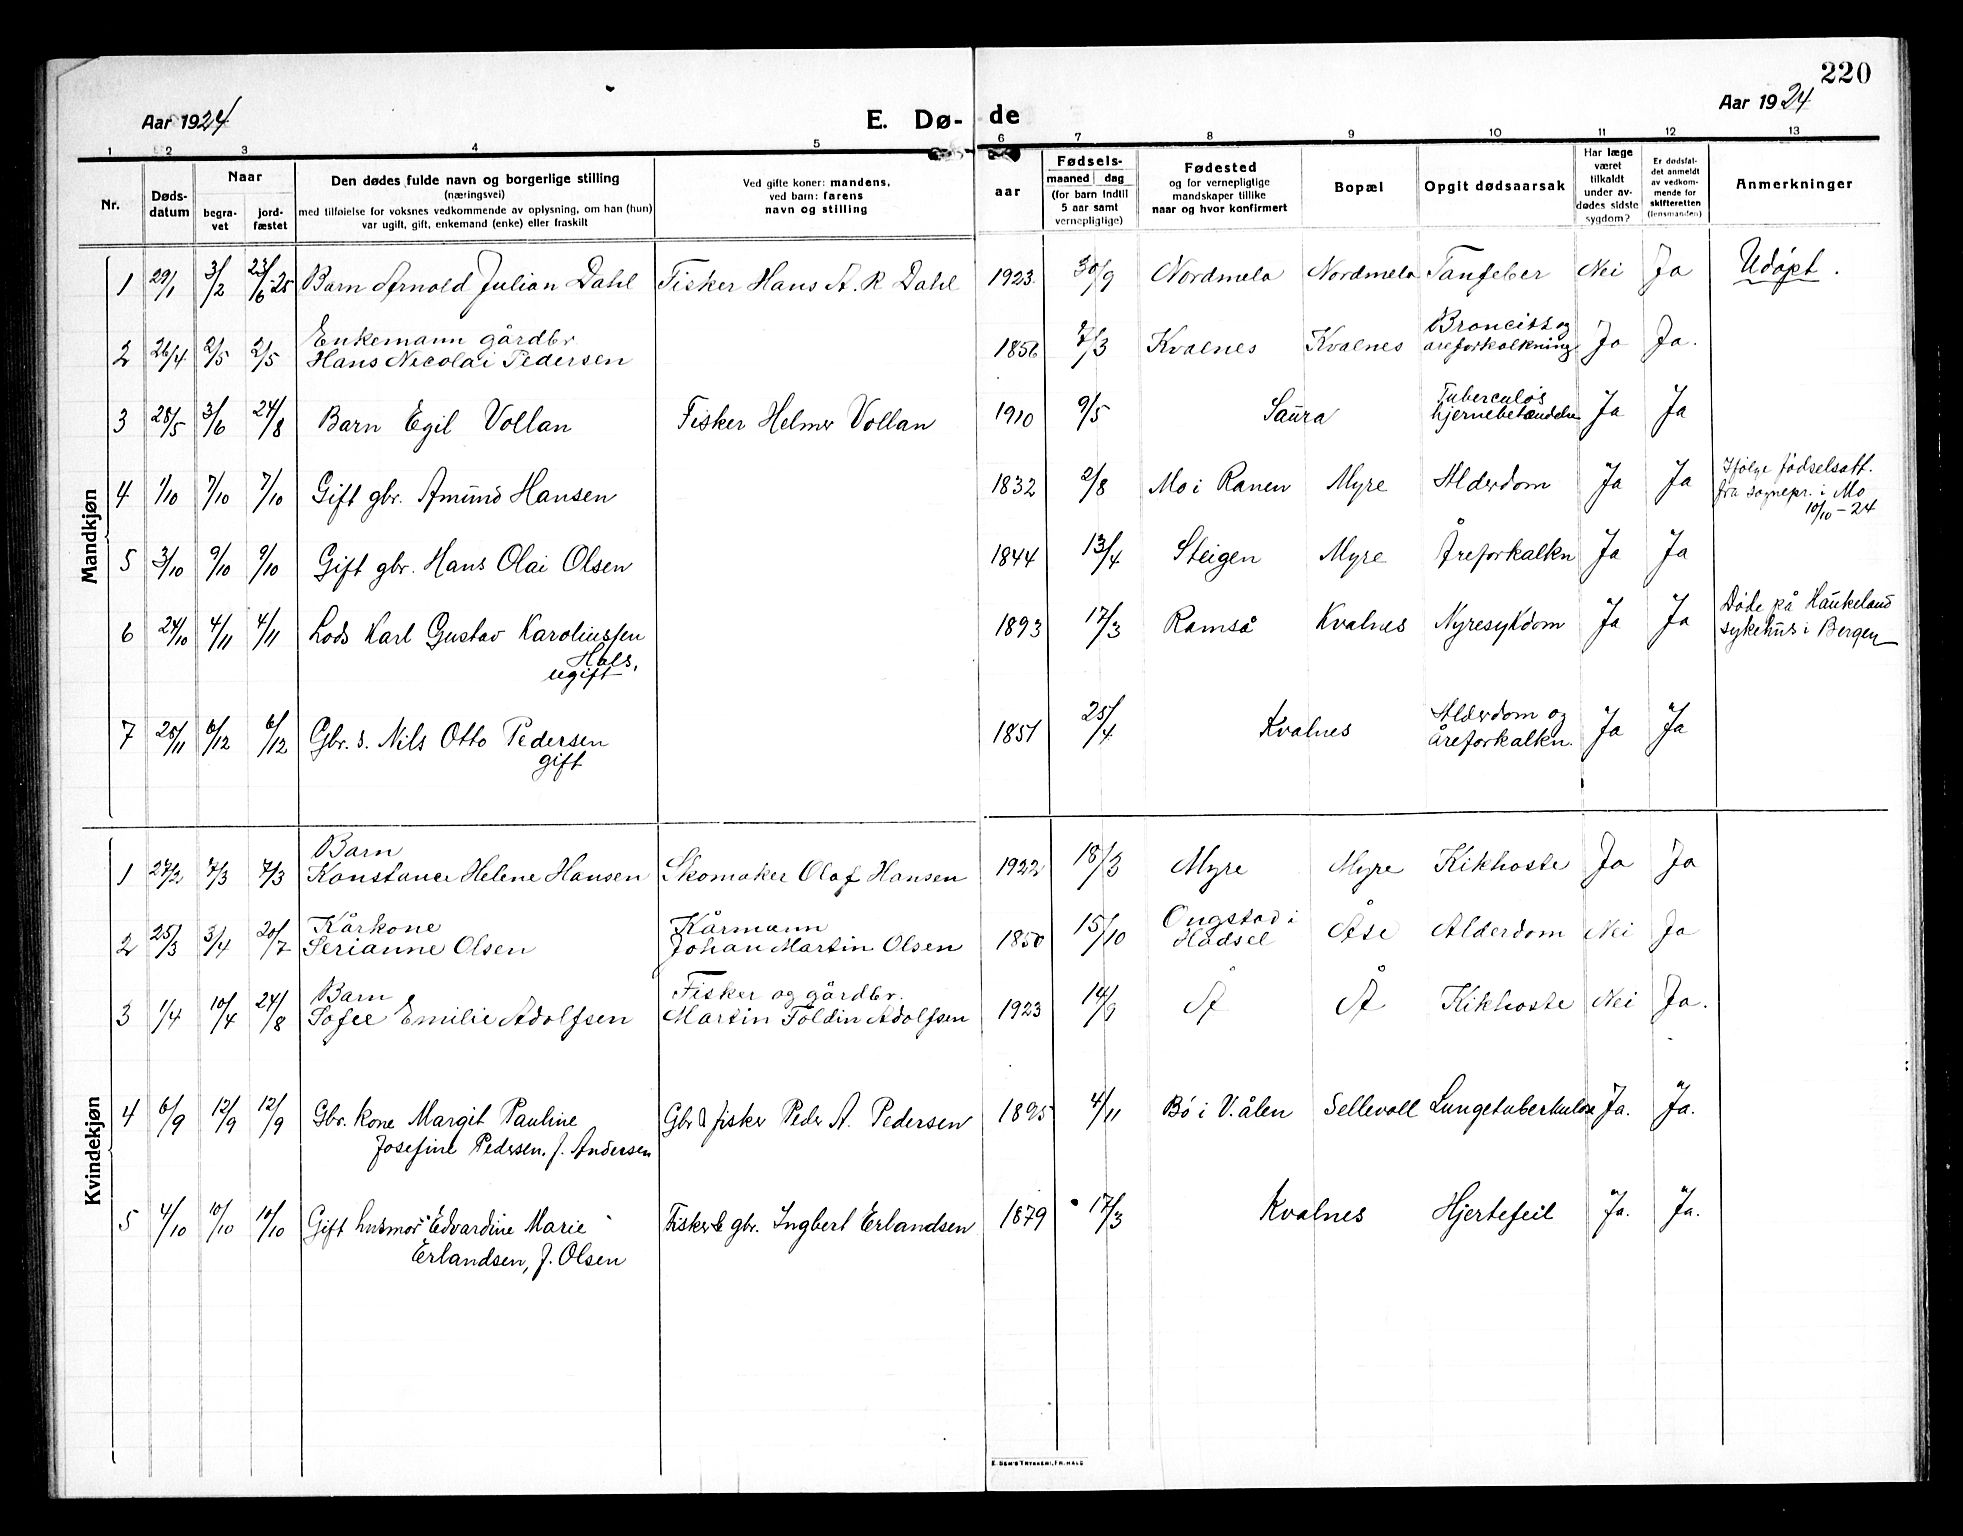 220
Aar 1924
E. Dø- de
Aar 1924
1 2 3 4 5 6 7 8 9 10 11 12 13
Nr.
Døds-
datum
Naar
begra-
vet
jord-
fæstet
Den dødes fulde navn og borgerlige stilling
(næringsvei)
med tilføielse for voksnes vedkommende av oplysning, om han (hun)
var ugift, gift, enkemand (enke) eller fraskilt
Ved gifte koner: mandens,
ved barn: farens
navn og stilling
aar
Fødsels-
maaned dag
(for barn indtil
5 aar samt
vernepligtige)
Fødested
og for vernepligtige
mandskaper tillike
naar og hvor konfirmert
Bopæl
Opgit dødsaarsak
Har læge
været
tilkaldt
under av-
dødes sidste
sygdom?
Er dødsfal-
det anmeldt
av vedkom-
mende for
skifteretten
(lensmanden)
Anmerkninger
Mandkjøn
1 29/1 3/2 23/6-25 Barn Arnold Julian Dahl Fisker Hans A. R Dahl 1923 30/9 Nordmela Nordmela Tanfeber Nei Ja Udøpt.
2 26/4 2/5 2/5 Enkemann gårdbr. 1856 7/3 Kvalnes Kvalnes Broncitt og Ja Ja.
Hans Nicolai Pedersen åreforkalkning
3 28/5 3/6 24/8 Barn Egil Vollan Fisker Helmer Vollan 1910 9/5 Saura Tuberculøs Ja Ja
hjernebetændelse
4 1/10 7/10 7/10 Gift gbr. Amund Hansen 1832 2/8 Mo i Ranen Myre Alderdom Ja Ja Ifølge fødselsatt.
fra sognepr. i Mo
10/10-24
5 3/10 9/10 9/10 Gift gbr. Hans Olai Olsen 1844 13/4 Steigen Myre Åreforkalkn Ja Ja
6 24/10 4/11 4/11 Lods Karl Gustav Karoliussen 1893 17/3 Ramså Kvalnes Nyresykdom Ja Ja Døde på Haukeland
Hals, sykehus i Bergen
ugift
7 25/11 6/12 6/12 Gbr. s. Nils Otto Pedersen 1851 25/4 Kvalnes Alderdom og Ja Ja
gift åreforkalkn.
Kvindekjøn
1 27/2 7/3 7/3 Barn
Konstance Helene Hansen Skomaker Olaf Hansen 1922 18/3 Myre Myre Kikhoste Ja Ja
2 25/3 3/4 20/7 Kårkone Kårmann 1850 15/10 Ongstad i Åse Alderdom Nei Ja
Serianne Olsen Johan Martin Olsen Hadsel
3 1/4 10/4 24/8 Barn Fisker og gårdbr. 1923 14/9 Å Å Kikhoste Nei Ja.
Sofie Emilie Adolfsen Martin Foldin Adolfsen
4 6/9 12/9 12/9 Gbr. kone Margit Pauline Gbr & fisker Peder A. Pedersen 1895 4/11 Bø i V.ålen Sellevoll Lungetuberkulose Ja. Ja.
Josefine Pedersen, f. Andersen
5 4/10 10/10 10/10 Gift husmor Edvardine Marie Fisker & gbr. Ingbert Erlandsen 1879 17/3 Kvalnes Hjertefeil Ja. Ja.
Erlandsen, f. Olsen